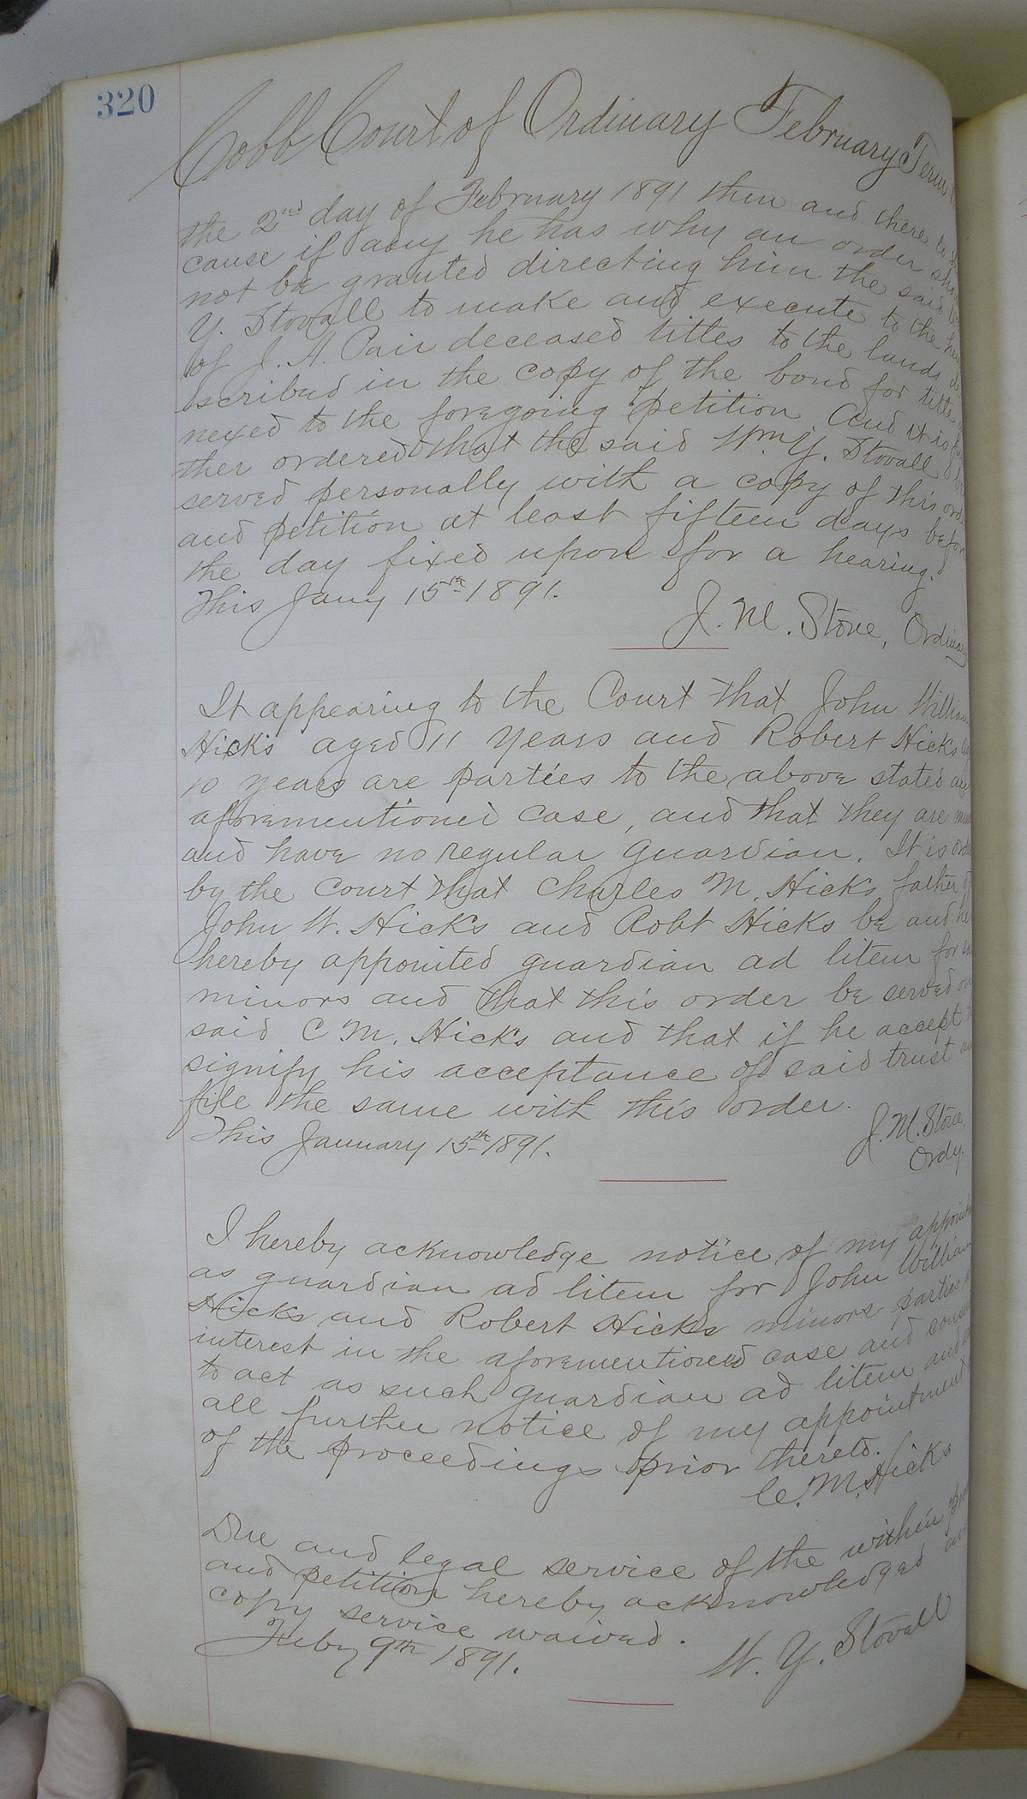 320
Cobb Court of Ordinary February Term
the 2nd day of February 1891 then and there to
cause if any he has why an order
not be granted directing him the said
Y. Stovall to make and execute to the
of J. A. Pair deceased titles to the lands
scribed in the copy of the bond for title
nexed to the foregoing petition And it is
ther ordered that the said Wm Y. Stovall
served personally with a copy of this
and petition at least fifteen days before
the day fixed upon for a hearing.
This Jany 15th 1891.
J. M. Stone, Ordinary
It appearing to the Court that John William
Hicks aged 11 years and Robert Hicks
10 years are parties to the above stated
aforementioned case, and that they are
and have no regular guardian. It is
by the court that Charles M. Hicks, father
John W. Hicks and Robt Hicks be and
hereby appointed guardian ad litem for
minors and that this order be served
said C M. Hicks and that if he accept
signify his acceptance of said trust
file the same with this order.
This January 15th 1891.
J. M. Stone,
Ordy.
I hereby acknowledge notice of my
as guardian ad litem for John William
Hicks and Robert Hicks minors parties
interest in the aforementioned case and
to act as such guardian ad litem and
all further notice of my appointment
of the proceedings prior thereto.
C. M. Hicks
Due and legal service of the within
and petition hereby acknowledged
copy service waived.
Feby 9th 1891.
W. Y. Stovall